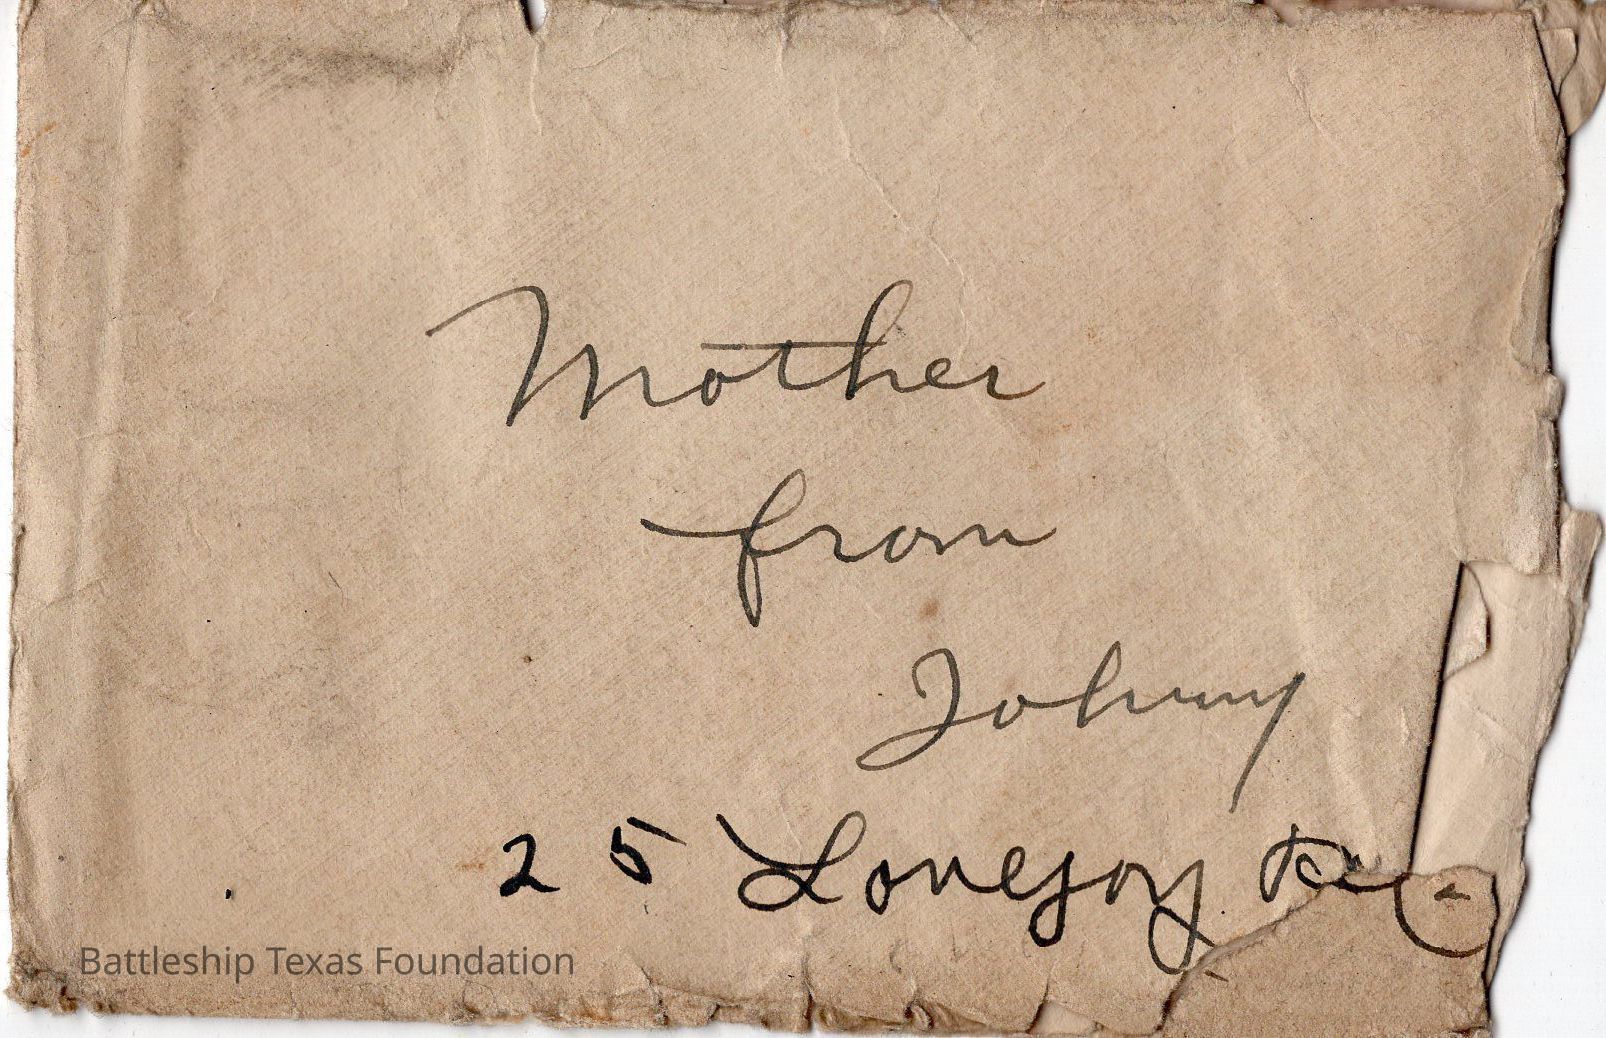 Mother
from
Johnny
25 Lovejoy
Battleship Texas Foundation